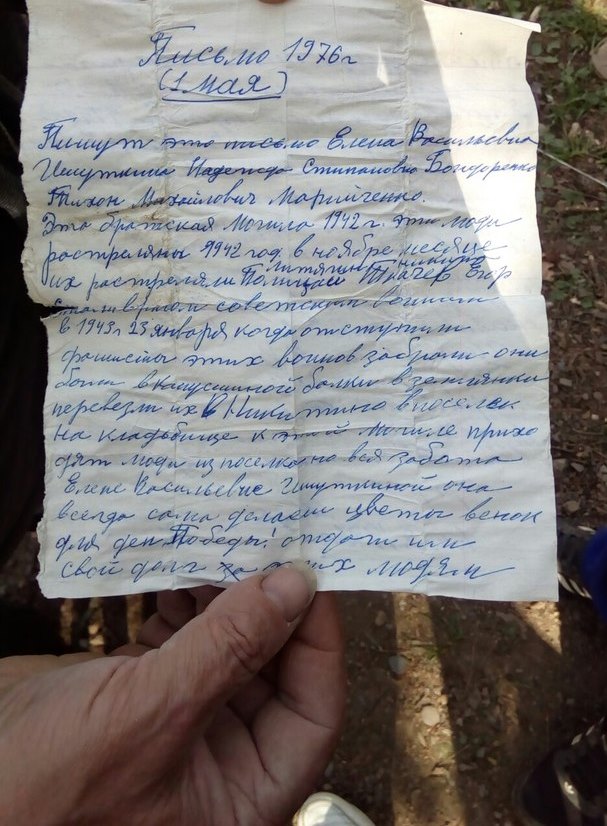 Письмо 1976 г
(1 мая)
Пишут это письмо Елена Васильевна
Ишуткина Надежда Стипановна Бондоренко
Тихон Махойлович Марийченко.
Это братская могила 1942 г. эти люди
растреляны 9942 год в ноябре месяце
их растреляли Полицаи Литягин Никита Ткачев Егор
советским воином
в 1943 г 23 января когда отступили
фашисты этих воинов забрали они
были в балки в землянки
перевезли их в Никитино в поселок
на кладбище к этой могиле прихо
дят люди из поселка но вся забота
Елене Васильевне Ишуткиной она
всегда сама делает цветы венок
для ден Победы! отдали или
свой долг за этих людям